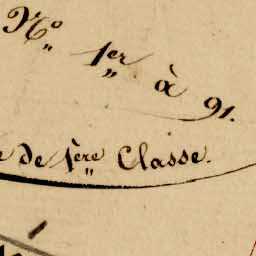 Nº 1er à 91.
de 1ère Classe.